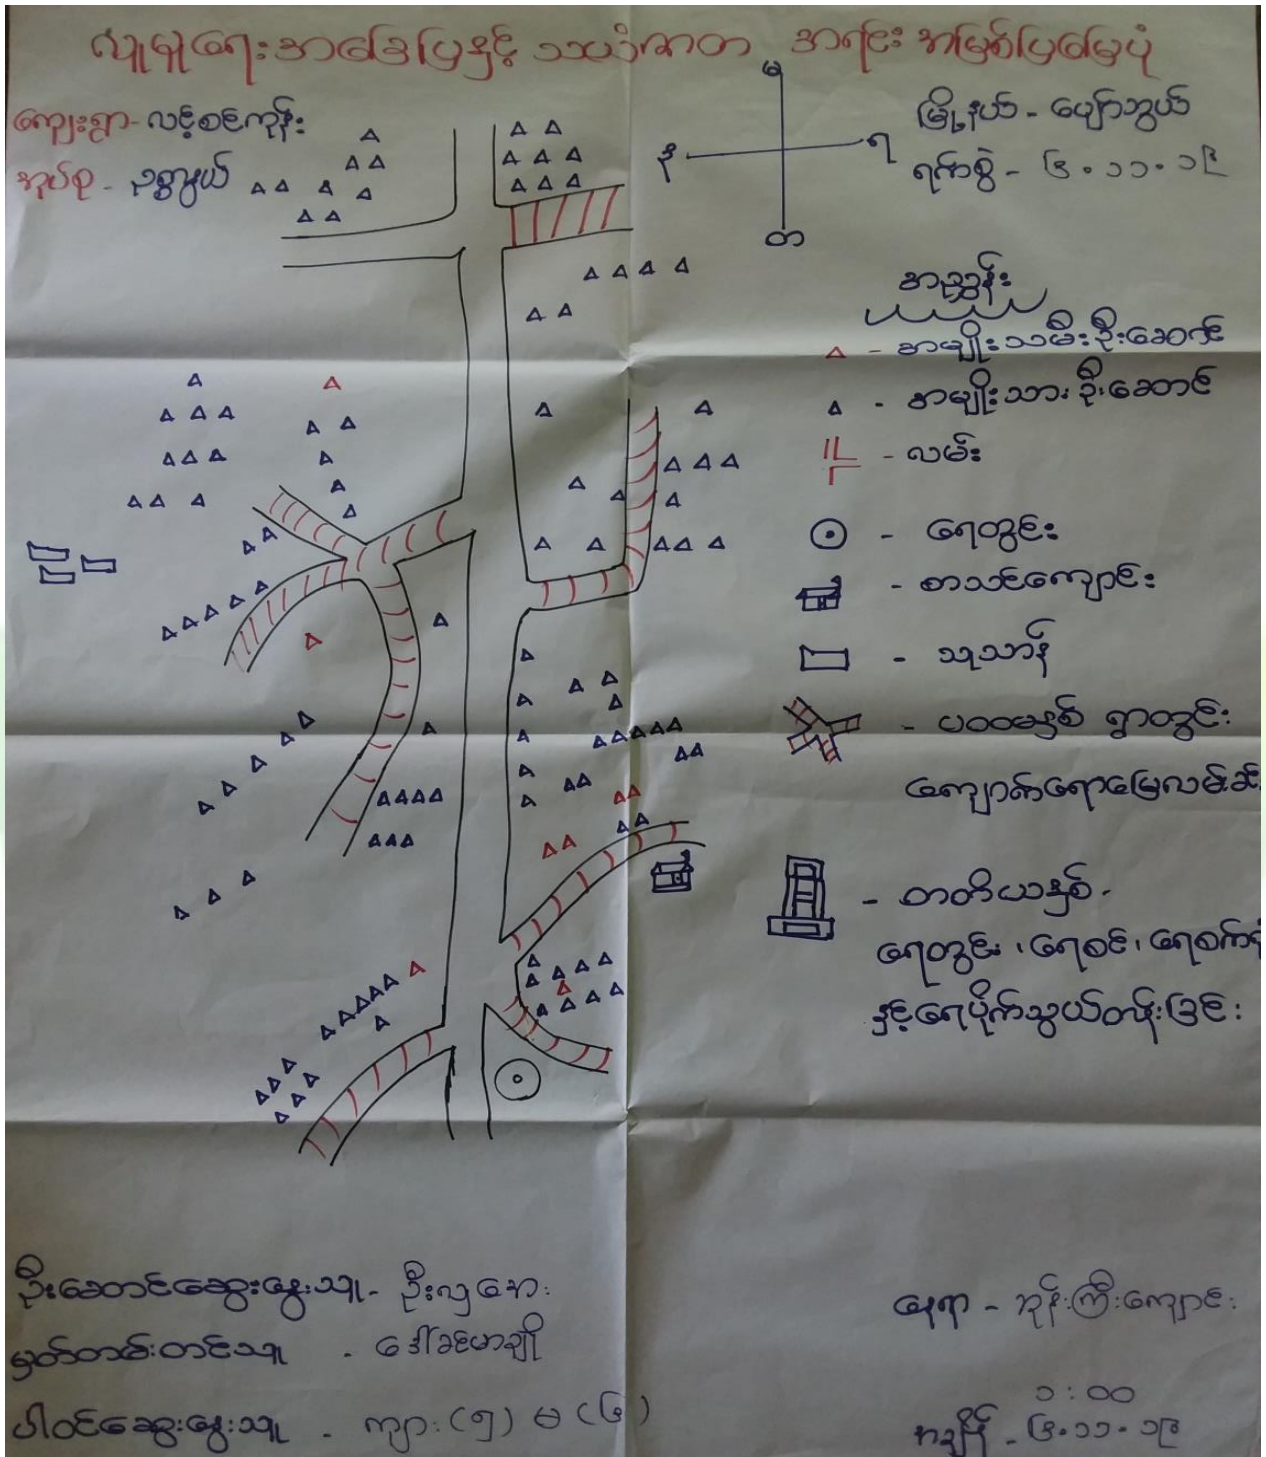 လူမှုရေးအခြေပြနှင့် သယံဇာတ အရင်းအမြစ်ပြမြေပုံ
ကျေးရွာ - လင့်စင်ကုန်း
အုပ်စု - ဥရွှာနယ်
မ
န
ရ
တ
မြို့နယ် - ပျော်ဘွယ်
ရက်စွဲ - ၆.၁၁.၁၉
အညွှန်း
- အမျိုးသမီးဦးဆောင်
- အမျိုးသားဦးဆောင်
- လမ်း
- ရေတွင်း
- စာသင်ကျောင်း
- သုသာန်
- ပထမနှစ် ရွာတွင်း
ကျောက်ရောမြေလမ်းခင်း
- တတိယနှစ်
ရေတွင်း၊ ရေစင်၊ ရေစက်ရုံ
နှင့်ရေပိုက်သွယ်တန်းခြင်း
ဦးဆောင်ဆွေးနွေးသူ - ဦးလှအေး
မှတ်တမ်းတင်သူ - ဒေါ်ခင်မာချို
ပါဝင်ဆွေးနွေးသူ - ကျား (၅) မ (၆)
နေရာ - ဘုန်းကြီးကျောင်း
၁:၀၀
အချိန် - ၆.၁၁.၁၉